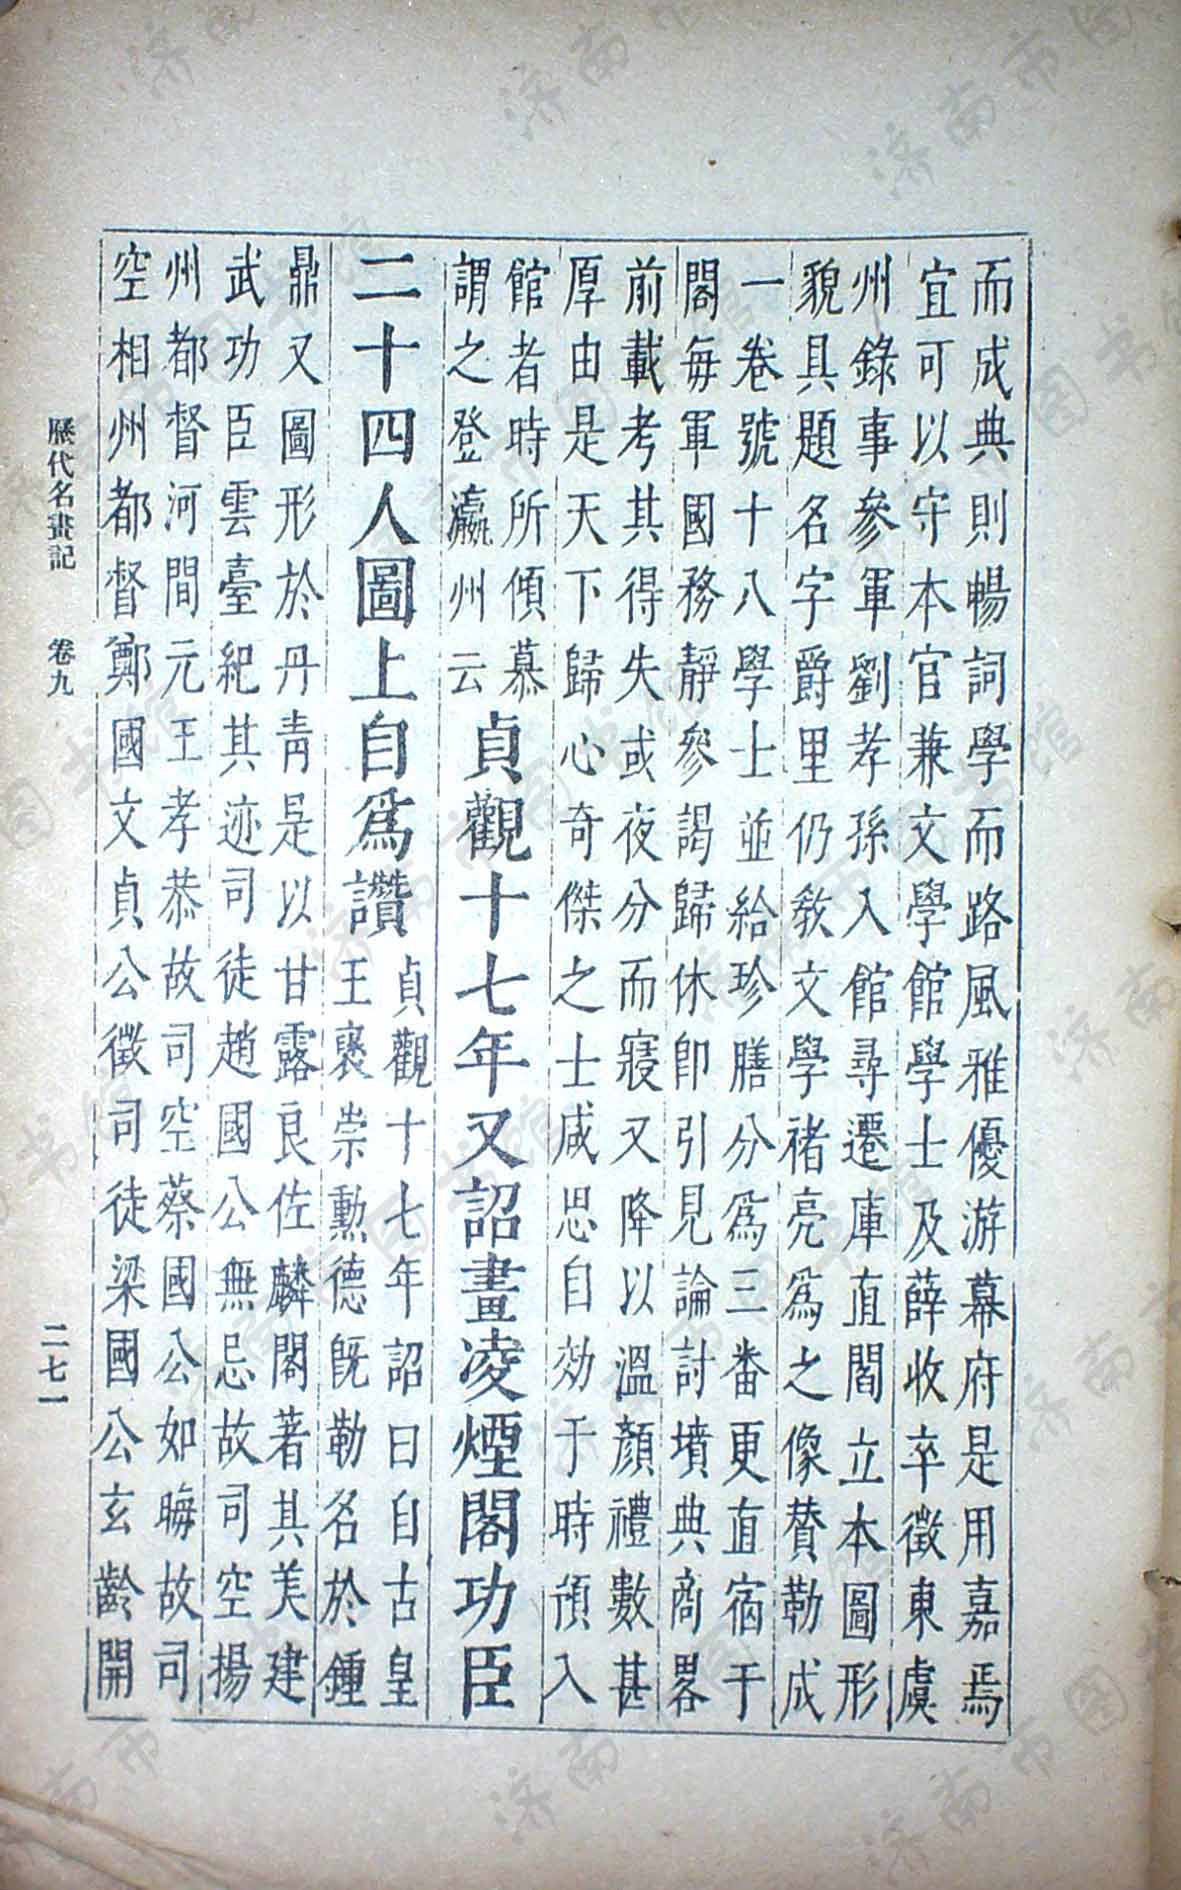 而成典則暢詞學而路風雅優游幕府是用嘉焉
宜可以守本官兼文學館學士及薛收卒徵東虞
州錄事參軍劉孝孫入館尋遷庫直閻立本圖形
貌具題名字爵里仍敎文學褚亮爲之像贊勒成
一卷號十八學士並給珍膳分爲三番更直宿于
閣每軍國務靜參謁歸休卽引見論討墳典商畧
前載考其得失或夜分而寢又降以溫顏禮數甚
厚由是天下歸心奇傑之士咸思自効于時預入
館者時所傾慕
謂之登瀛州云
貞觀十七年又詔畫凌煙閣功臣
二十四人圖上自爲讚
貞觀十七年詔曰自古皇
王襃崇勳德旣勒名於鍾
鼎又圖形於丹青是以甘露良佐麟閣著其美建
武功臣雲臺紀其迹司徒趙國公無忌故司空揚
州都督河間元王孝恭故司空蔡國公如晦故司
空相州都督鄭國文貞公徵司徒梁國公玄齡開
歷代名畫記 卷九 二七一
济南市图书馆